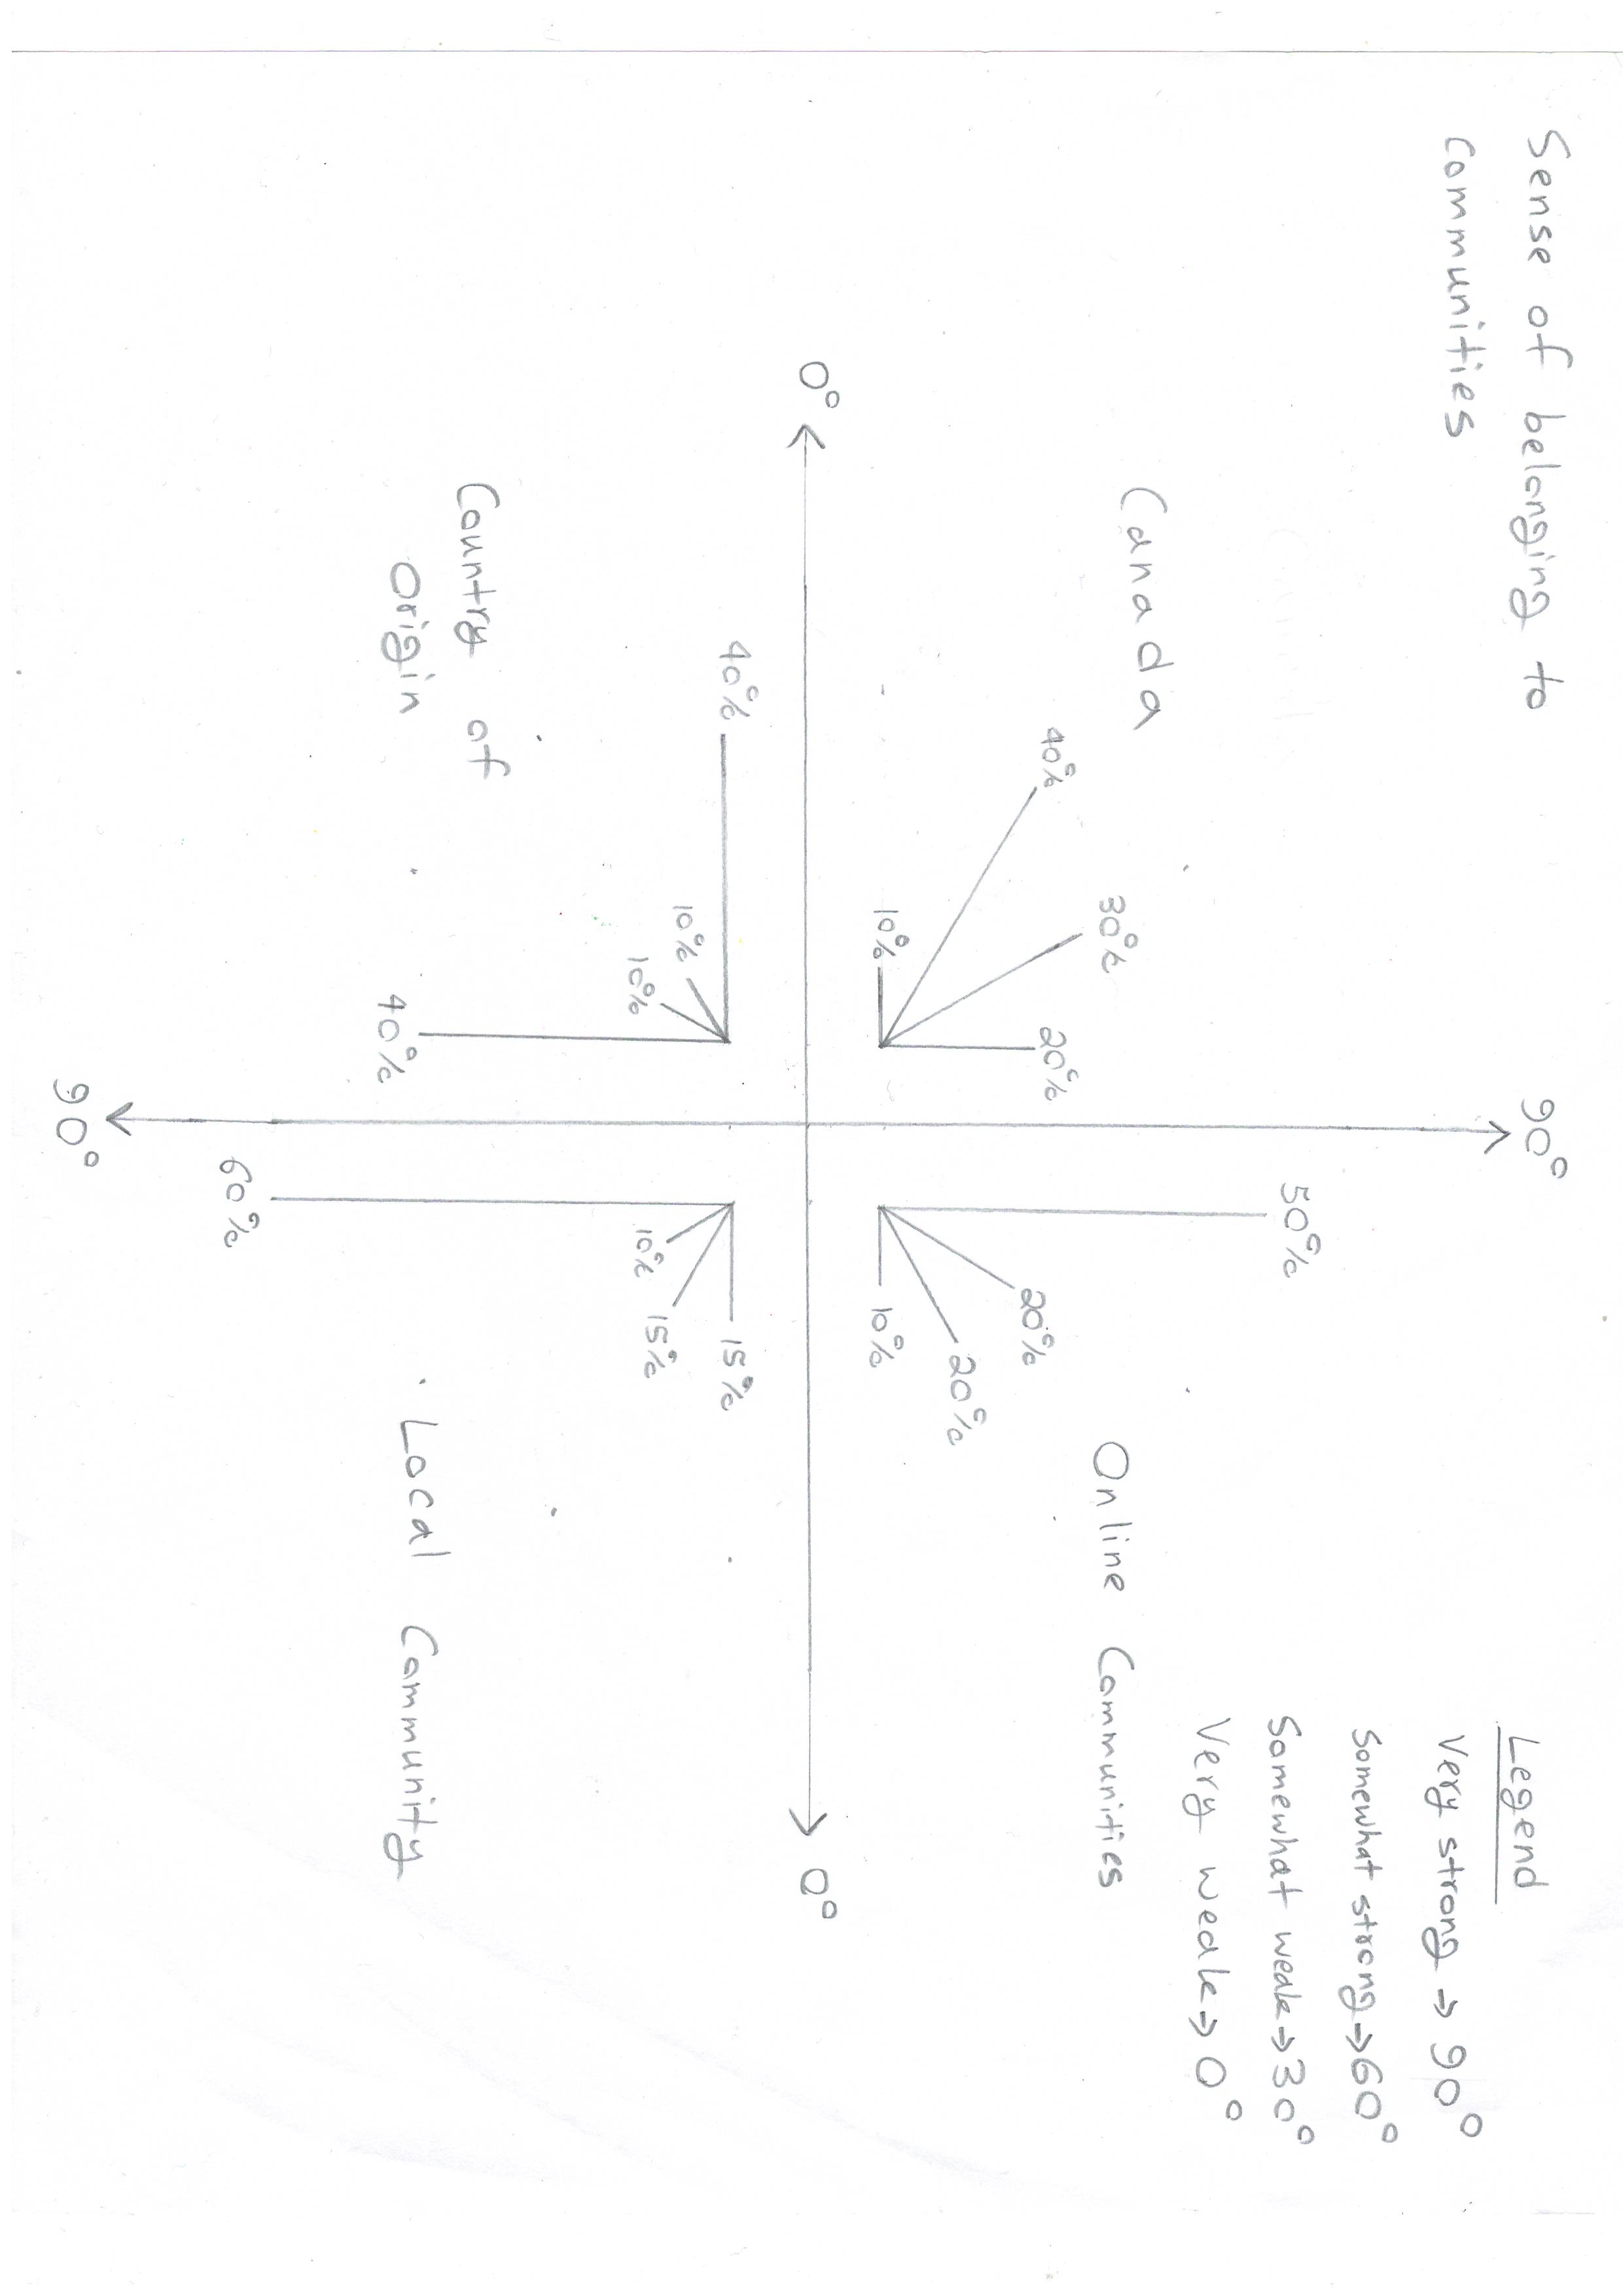 Sense of belonging to
Communities
90°
Legend
Very strong → 90°
Somewhat strong → 60°
Somewhat weak → 30°
Very weak → 0°
50%
Canada
Online Communities
30%
40%
20%
20%
20%
10%
10%
0°
0°
40%
10%
10%
15%
15%
10%
40%
Country of
Origin
Local Community
60%
90°